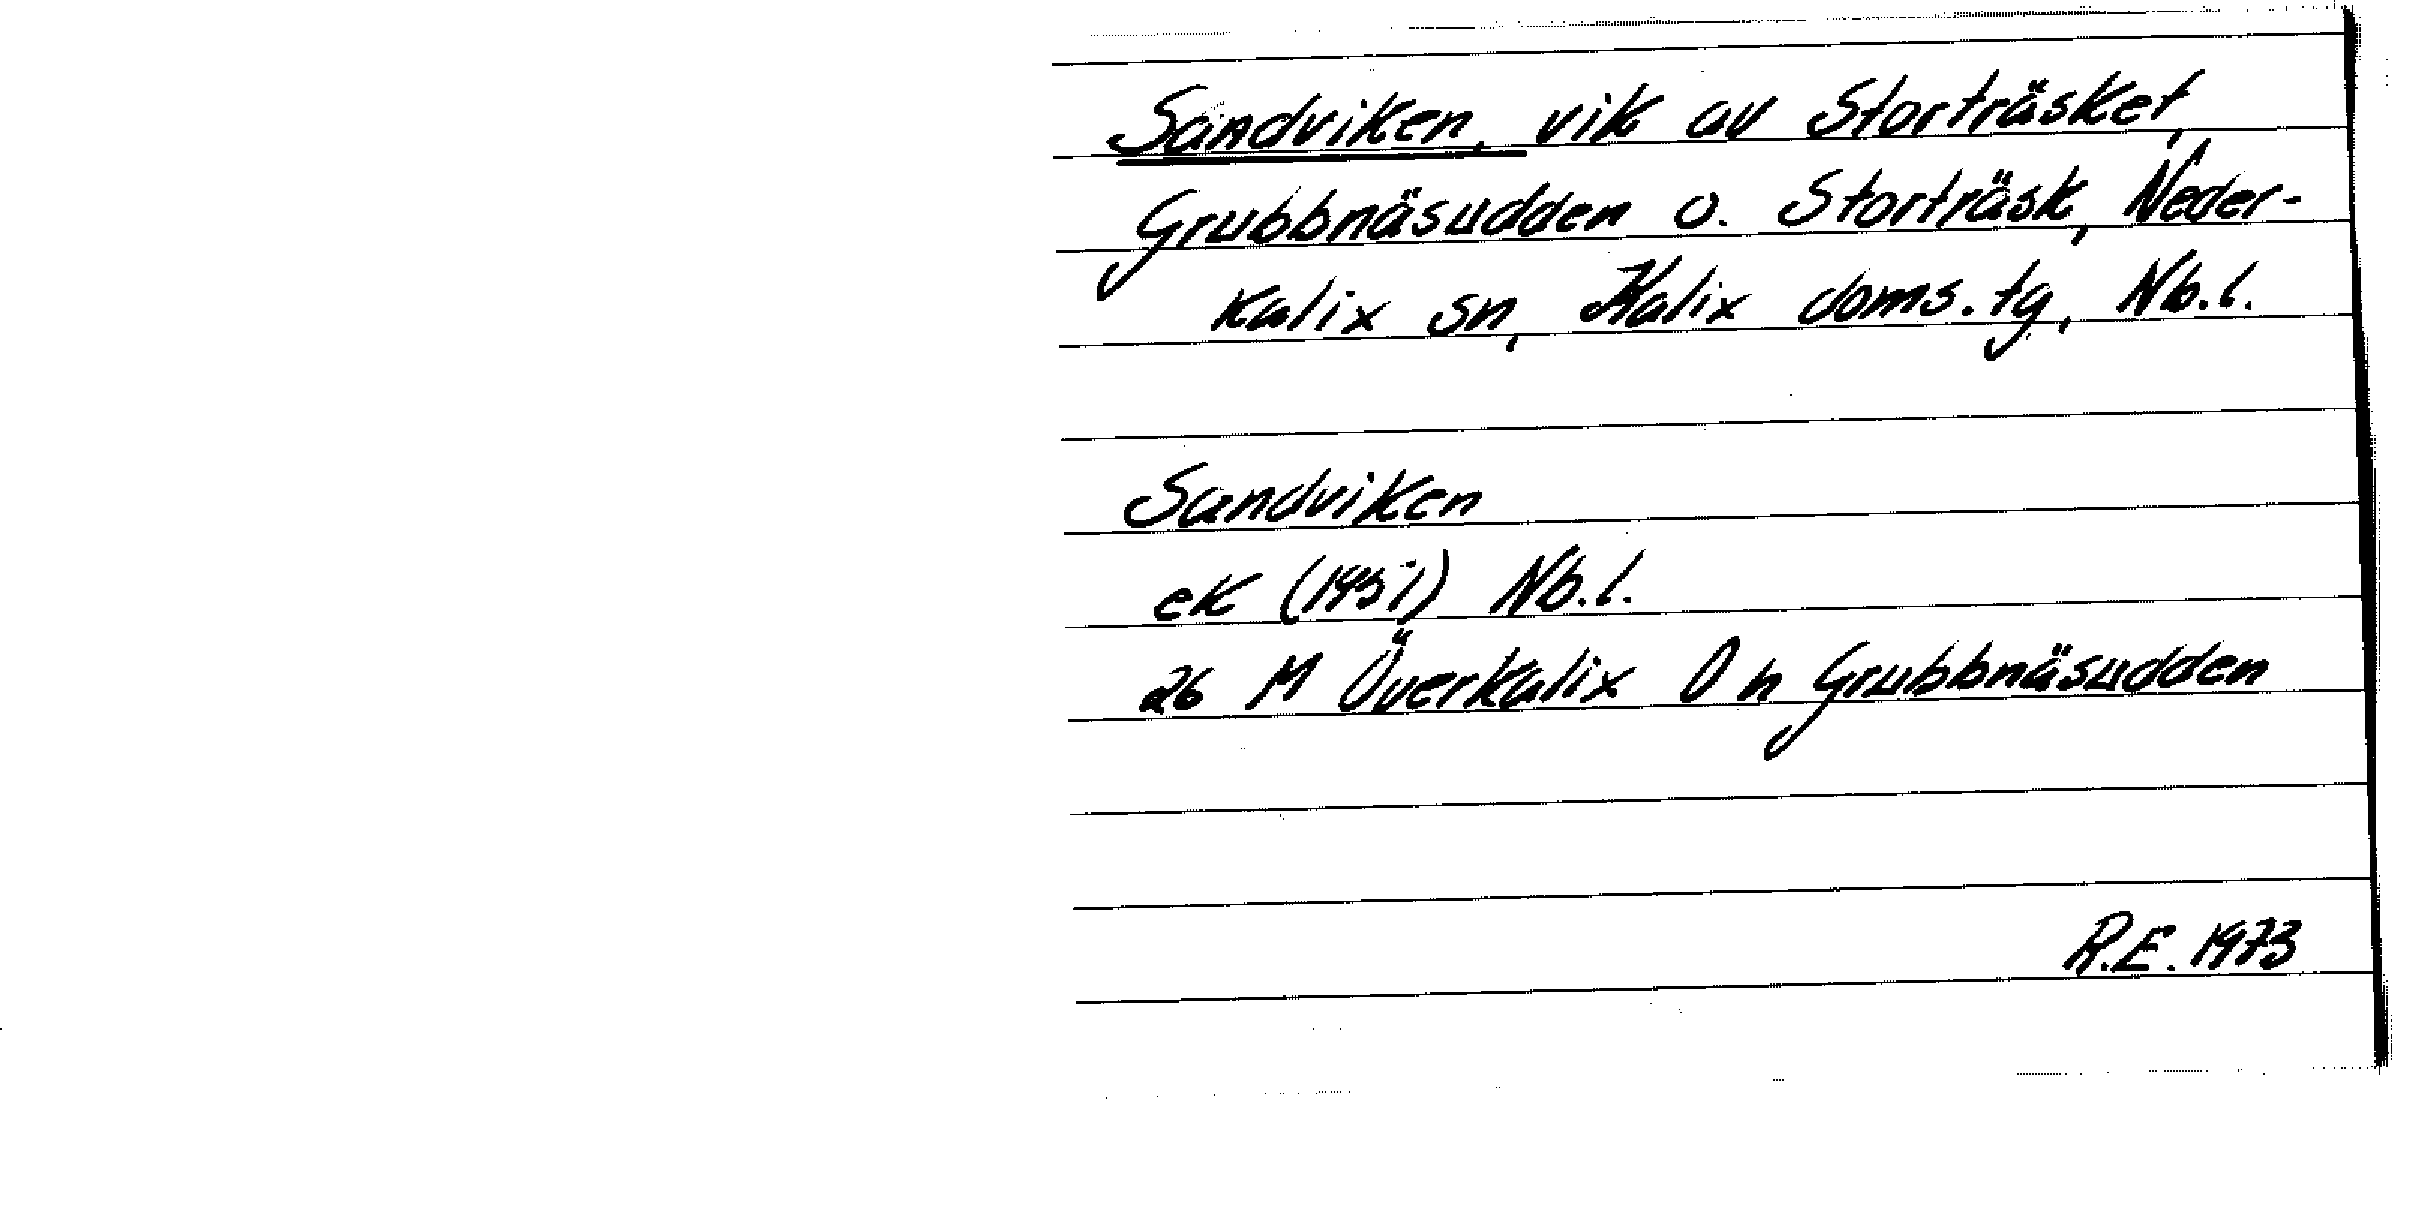 Sandviken, vik av Storträsket,
Grubbnäsudden o. Storträsk, Neder-
kalix sn, Kalix doms. tg, Nb.l.
Sandviken
ek (1951) Nb.l.
26 M Överkalix O h Grubbnäsudden
R.E. 1973